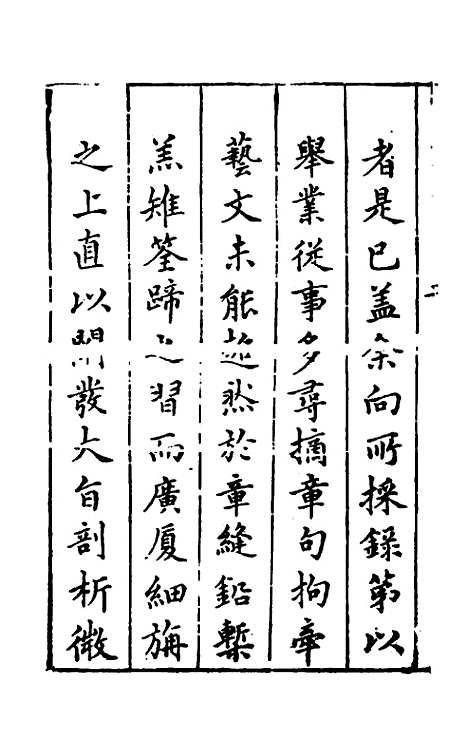 者是已盖余向所採錄第以
舉業從事多尋摘章句拘牽
藝文未能超然於章縫鉛槧
羔雉筌蹄之習而廣厦細旃
之上直以開發大旨剖析微